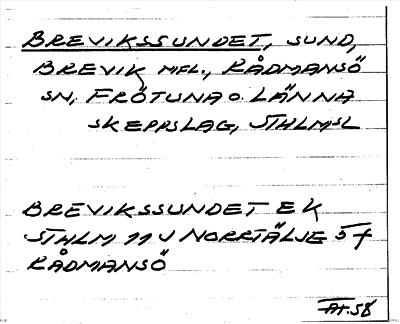 BREVIKSSUNDET, SUND,
BREVIK MFL., RÅDMANSÖ
SN, FRÖTUNA O. LÄNNA
SKEPPSLAG, STHLMSL
BREVIKSSUNDET EK
STHLM 11 J NORRTÄLJE 5 f
RÅDMANSÖ